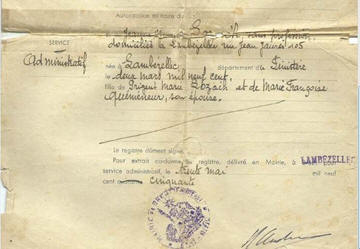 Autorisation militaire du
SERVICE
Administratif
sans profession
domiciliée à Lambézellec rue Jean Jaurès 105
née à Lambézellec département du Finistère
le deux mars mil neuf cent.
fille de Prigent Marie et de Marie Françoise
Quéméneur, son épouse.
Le registre dûment signé.
Pour extrait conforme au registre, délivré en Mairie, à LAMBEZELLEC
service administratif, le trente mai mil neuf
cent cinquante